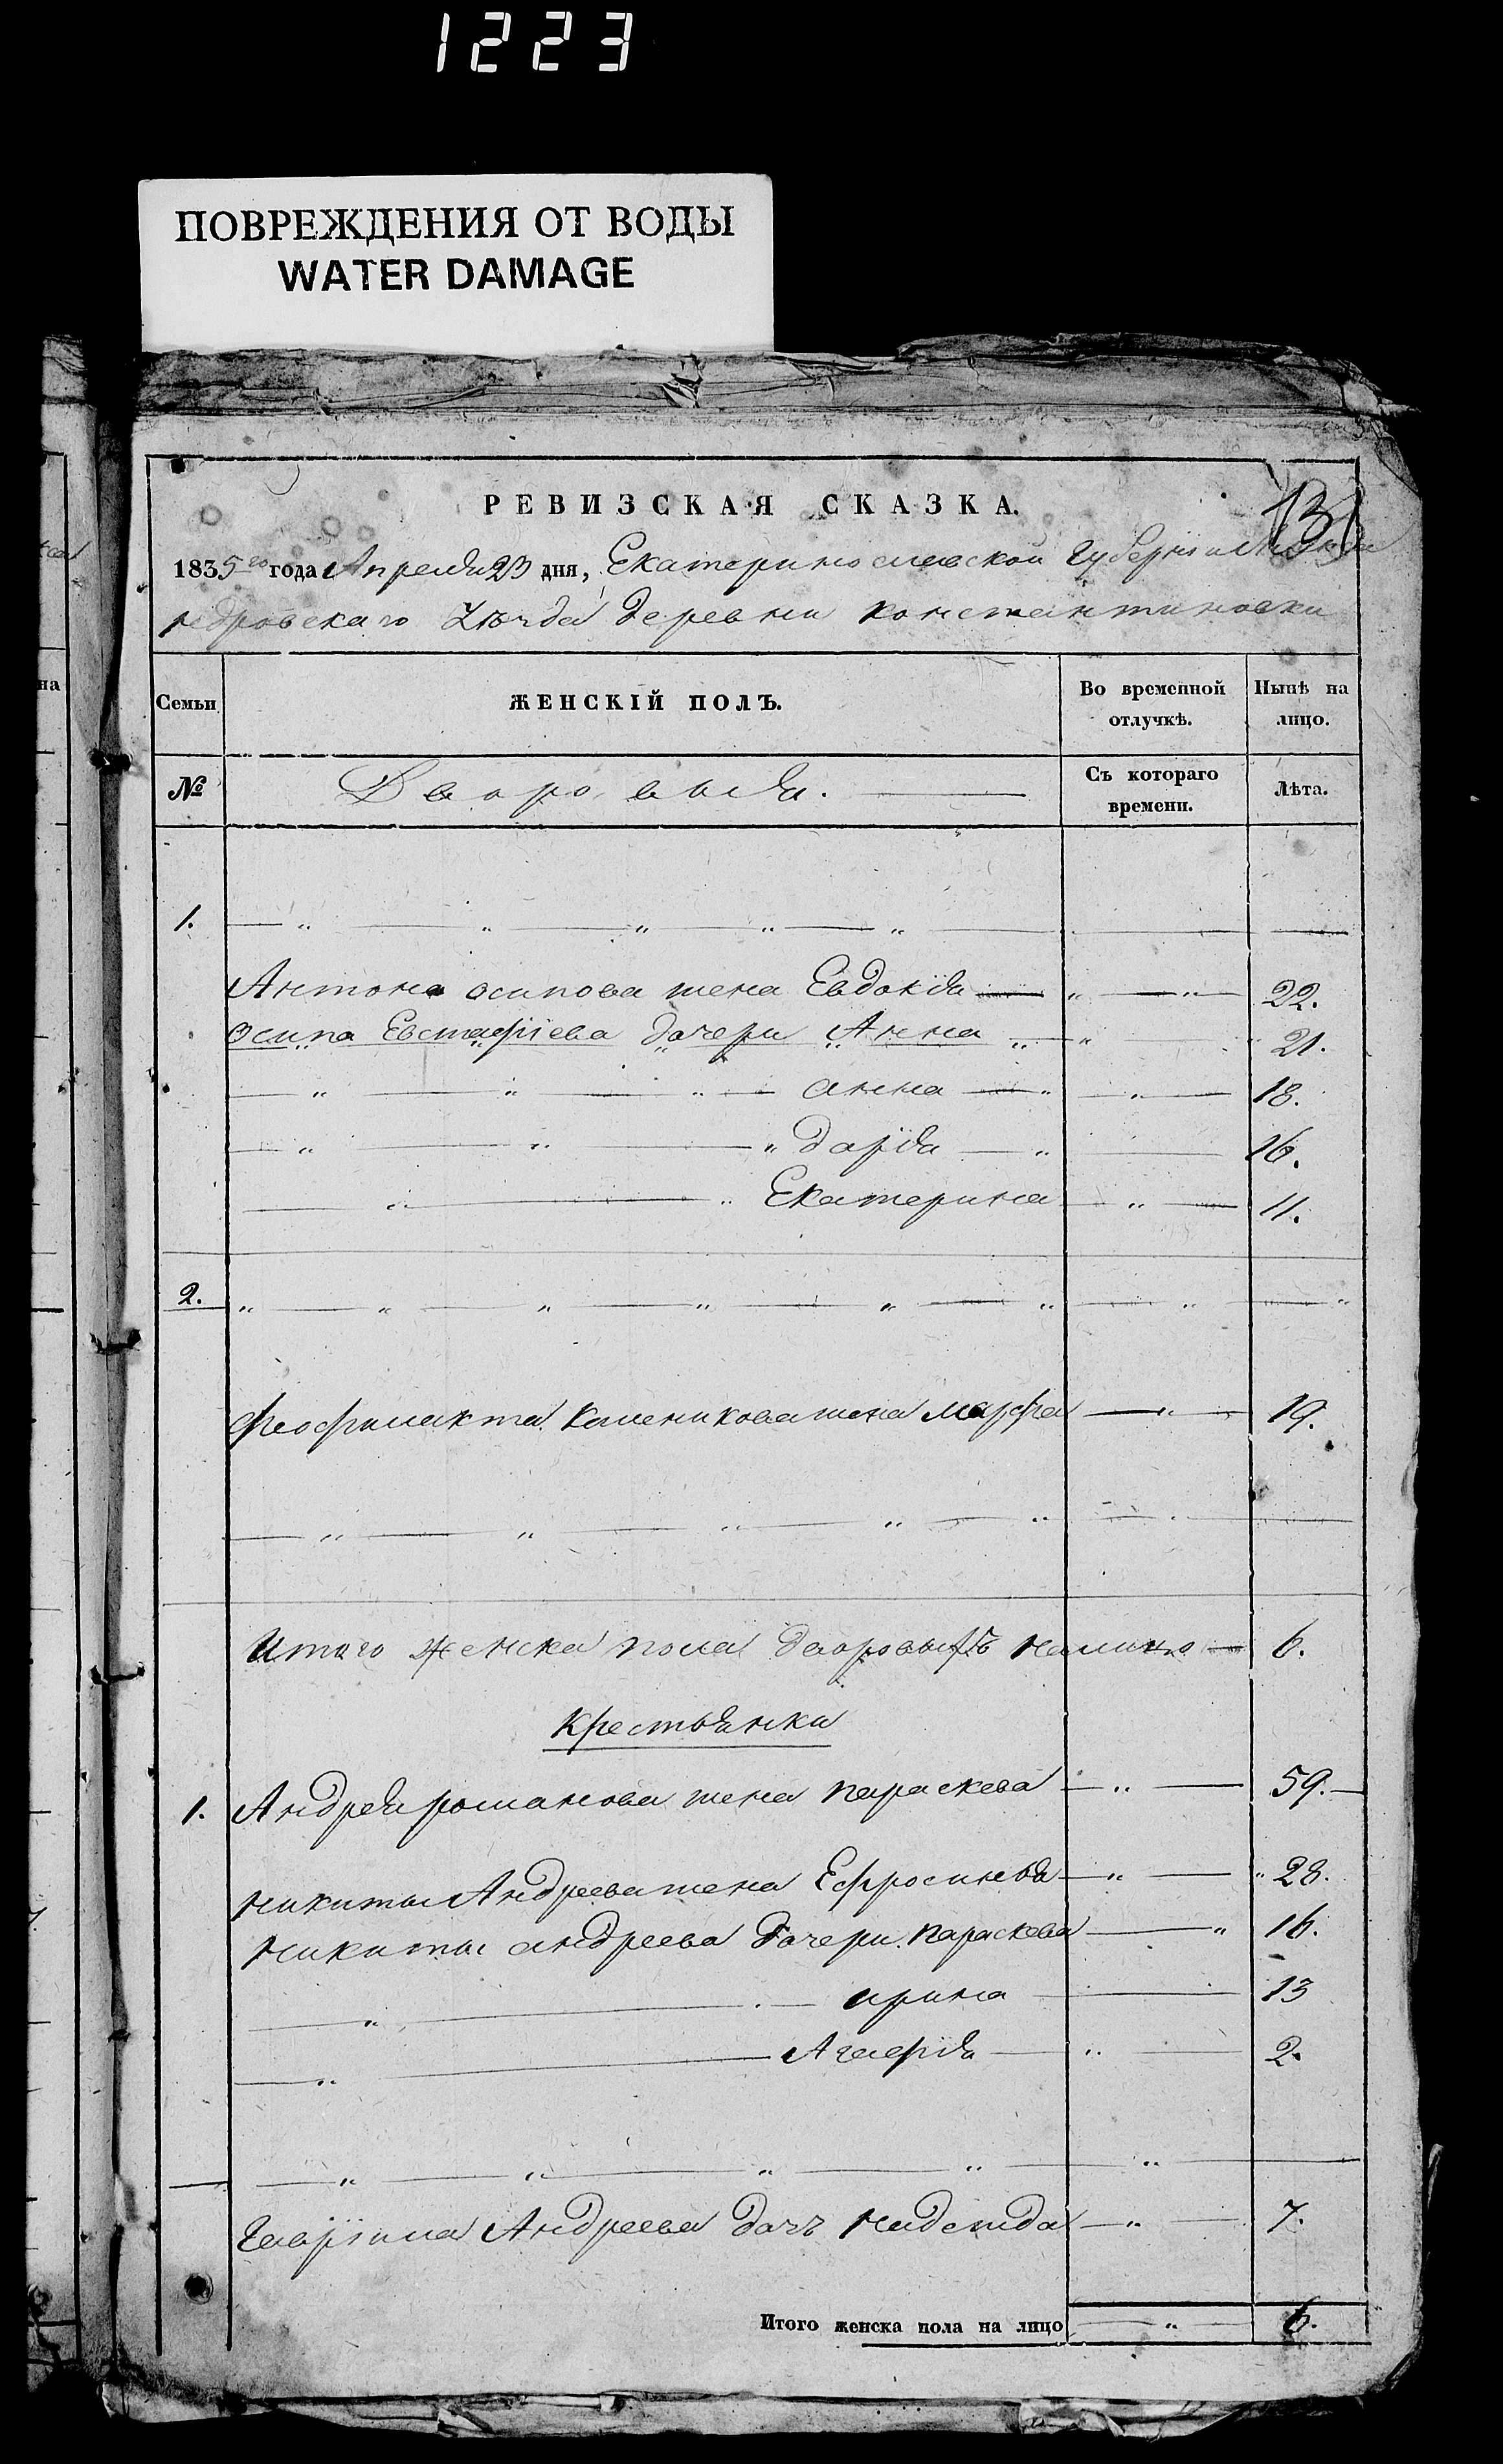 1223
ПОВРЕЖДЕНИЯ ОТ ВОДЫ
WATER DAMAGE
РЕВИЗСКАЯ СКАЗКА.
131
1835го года Апреля 23 дня, Екатеринославской губерніи Алекса
ндровскаго Уѣзда деревни Константиновки
Семьи
ЖЕНСКІЙ ПОЛЪ.
Во временной отлучкѣ.
Нынѣ на лицо.
№
Дворовыя.
Съ котораго времени.
Лѣта.
1.
Антона осипова жена Евдокія 22.
Осипа Евстафіева дочери Анна 21.
анна 18.
дарія 16.
Екатерина 11.
2.
Феофилакта жена марфа 19.
Итого женска пола дворовыхъ налицо 6.
Крестьянки
1. Андрея романова жена параскева 59.
никиты Андреева жена Ефросинья 28.
никиты андреева дочери параскева 16.
ирина 13
Агафія 2.
Гавріила Андреева дочь надежда 7.
Итого женска пола на лицо 6.